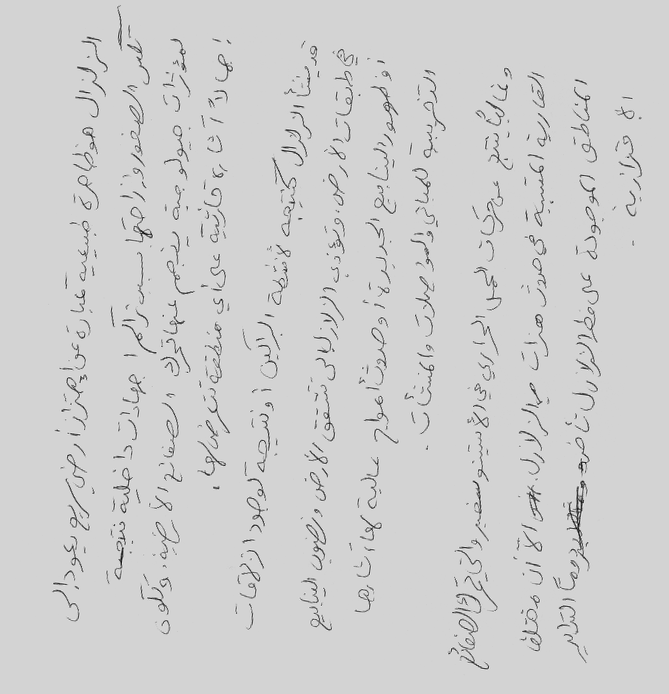 الزلزال هو ظاهرة طبيعية عبارة عن اهتزاز أرضي سريع يعود إلى
تكسر الصخور وإزاحتها بسبب تراكم اجهادات داخلية نتيجة
لمؤثرات جيولوجية ينجم عنها تحرك الصفائح الأرضية. وتكون
إجمالاً آثاره كارثية على أي منطقة تتعرض لها.
قد ينشأ الزلزال كنتيجة لأنشطة البراكين أو نتيجة لوجود انزلاقات
في طبقات الأرض. وتؤدي الزلازل إلى تشقق الأرض ونضوب الينابيع
أو ظهور الينابيع الجديدة أو حدوث أمواج عالية لها آثارها
التخريبية للمباني والمواصلات والمنشآت.
وغالباً ينتج عن حركات الحمل الحراري في الأستينوسفير والتي تحرك الصفائح
القارية المتسببة في حدوث هزات هي الزلازل. الا أن مختلف
المناطق الموجودة على خط الزلازل تأخذ دوماً التدابير
الاحترازية.